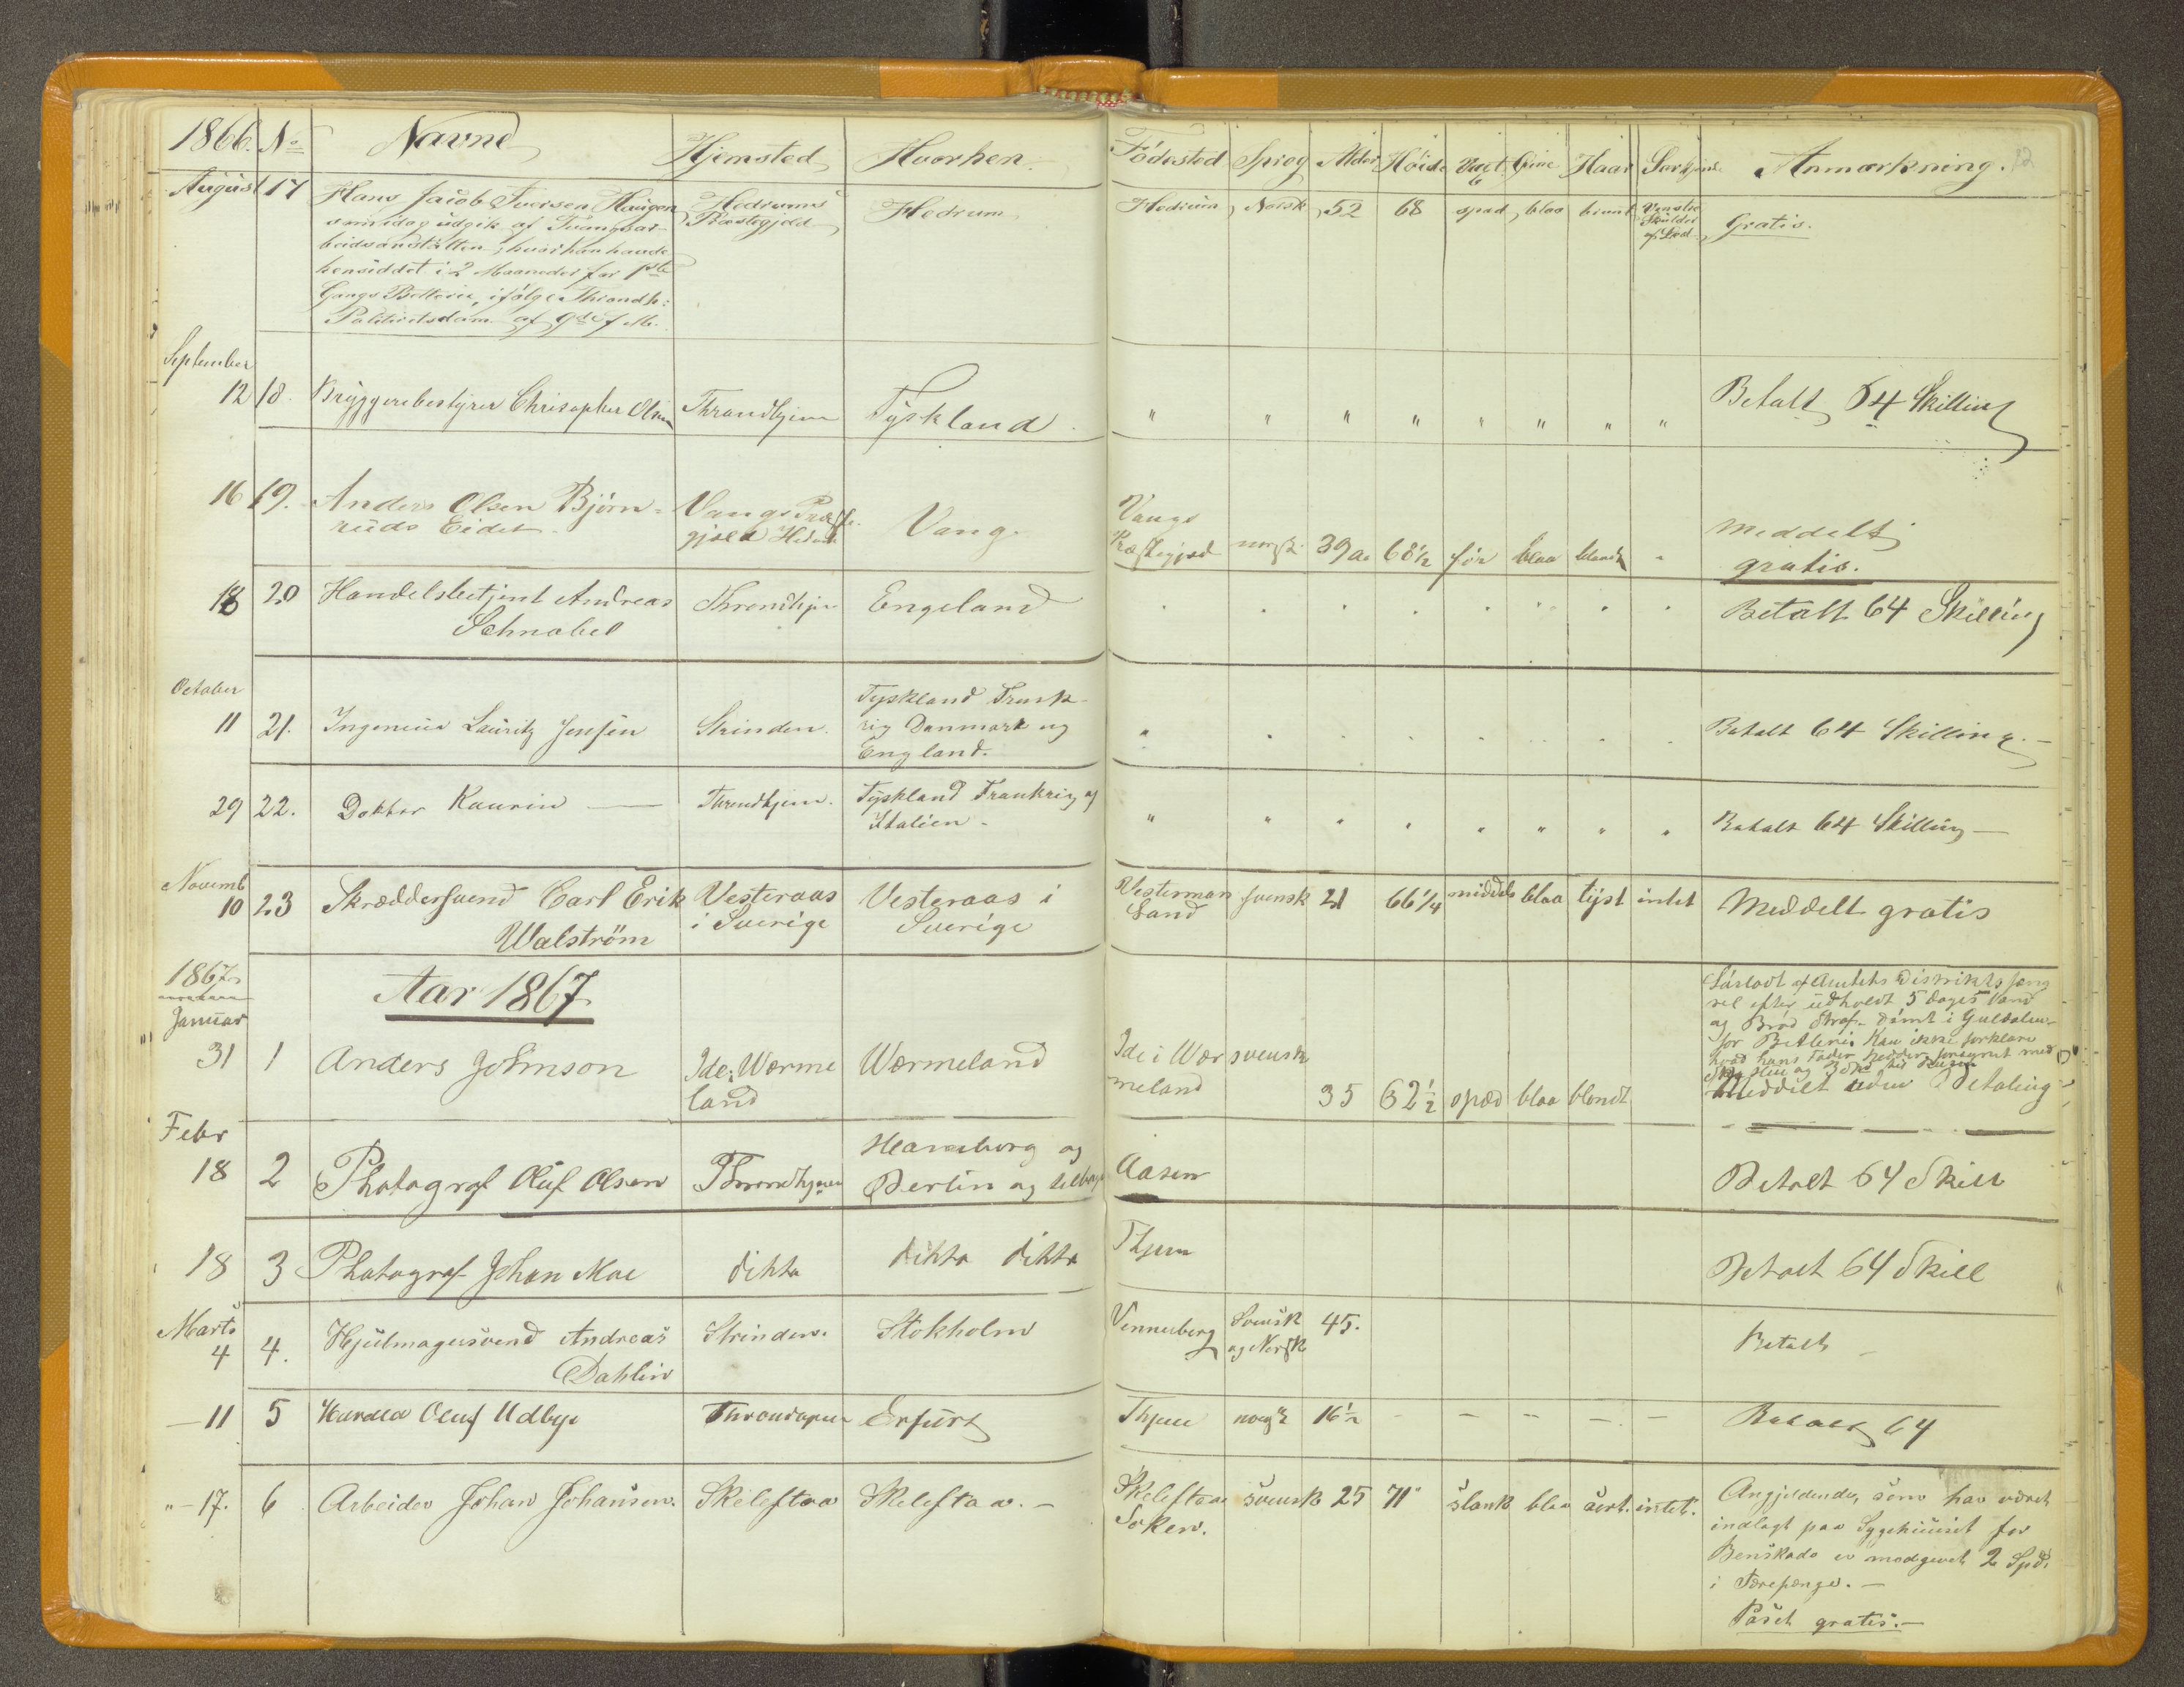 1866. No Navne Hjemsted Hvorhen Födested Sprog Alder Höide Væxt Öine Haar Anmærkning. 12
August 17 Hans Jacob Iversen Haugen Hedrums Hedrum Hedrum Norsk 52 68 spæd blaa brunt Venstre Gratis.
som idag udgik af Tvangsar- Præstegjeld Skulder
beidsanstalten, hvor han havde af Led
hensiddet i 2 Maaneder for 1ste
Gangs Betlerie, ifölge Throndh:
Politiretsdom af 9de f. M.
September
12 18. Bryggerebestyrer Chrisopher Olsen Throndhjem Tyskland " " " " " " " " Betalt 64 Skilling
16 19. Anders Olsen Björn- Vangs Præste- Vang. Vangs
ruds Eidet gjæld Hedm Præstegjæld norsk 39 68½ för blaa blondt " meddelt
gratis.
18 20 Handelsbetjent Andreas Throndhjem Engeland " " " " " " " " Betalt 64 Skilling
Schnabel
October Tyskland Frank-
11 21. Ingeniür Lauritz Jensen Strinden. rig Danmark og " Betalt 64 Skilling.
England.
29 22. Doktor Kaurin — Throndhjem. Tyskland Frankrig og " " " " " " " " Betalt 64 Skilling —
Italien
Novemb
10 23 Skræddersvend Carl Erik Vesteraas Vesteraas i Vesterman svensk 21 66¼ middels blaa lyst intet Meddelt gratis
Walström i Sverige Sverige land
1867
Aar 1867 Löslodt af Amtets Distrikts fæng
Januar sel efter udholdt 5 dages Vand
og Bröd Straf- dömt i
for Betleri. Kan ikke forklare
31 1 Anders Johnson Ide i Wærme Wærmeland Ide i Wær svensk hvad hans Fader hedder forsynet med
land meland 35 62½ spæd blaa blondt Meddelt uden Betaling
Febr Hamburg og
18 2 Photograf Oluf Olsen Throndhjem Berlin og tilbage Aasen Betalt 64 Skill
18 3 Photograf Johan Moe ditto ditto ditto Thjem Betalt 64 Skill
Marts
4 4. Hjulmagersvend Andreas Strinden. Stokholm Vennersborg Svensk 45. Betalt
Dahlin og Norsk
— 11 5 Oluf Udbye Throndhjem Erfurt Thjem norsk 16½ — — — — — Betalt 64
" — 17. 6 Arbeider Johan Johansen. Skeleftaa Skeleftaa. — Skeleftaa svensk 25 71" slank blaa sort. intet. Angjeldende, som har været
Soken. indlagt paa Sygehuuset for
Benskade er medgivet 2 Spd.
i Tærepenge. —
Passet gratis. —